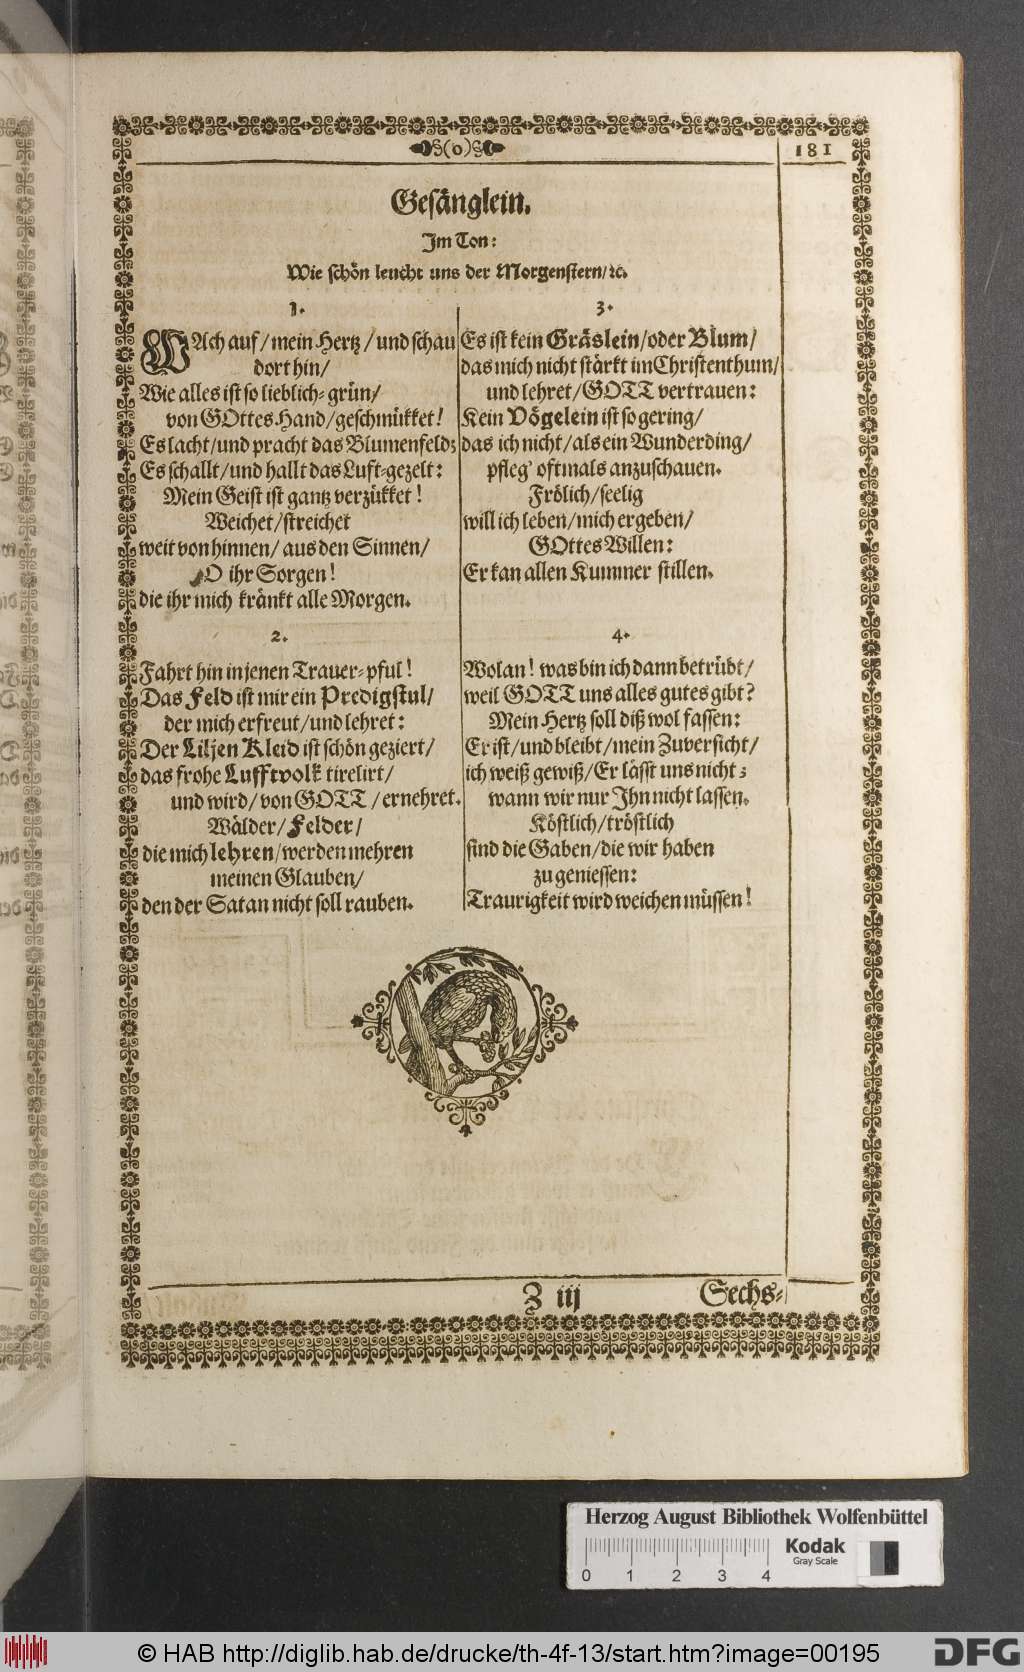 (o)
181
Gesänglein.
Im Ton:
Wie schön leucht uns der Morgenstern/ꝛc.
1.
WAch auf/mein Hertz/und schau
dort hin/
Wie alles ist so lieblich-grün/
von GOttes Hand/geschmükket!
Es lacht/und pracht das Blumenfeld;
Es schallt/und hallt das Luft-gezelt:
Mein Geist ist gantz verzükket!
Weichet/streichet
weit von hinnen/aus den Sinnen/
O ihr Sorgen!
die ihr mich kränkt alle Morgen.
2.
Fahrt hin in jenen Trauer-pful!
Das Feld ist mir ein Predigstul/
der mich erfreut/und lehret:
Der Liljen Kleid ist schön geziert/
das frohe Lufftvolk tirelirt/
und wird/von GOTT/ernehret.
Wälder/Felder/
die mich lehren/werden mehren
meinen Glauben/
den der Satan nicht soll rauben.
3.
Es ist kein Gräslein/oder Blum/
das mich nicht stärkt im Christenthum/
und lehret/GOTT vertrauen:
Kein Vögelein ist so gering/
das ich nicht/als ein Wunderding/
pfleg' oftmals anzuschauen.
Frölich/seelig
will ich leben/mich ergeben/
GOttes Willen:
Er kan allen Kummer stillen.
4.
Wolan! was bin ich dann betrübt/
weil GOTT uns alles gutes gibt?
Mein Hertz soll diß wol fassen:
Er ist/und bleibt/mein Zuversicht/
ich weiß gewiß/Er lässt uns nicht;
wann wir nur Ihn nicht lassen.
Köstlich/tröstlich
sind die Gaben/die wir haben
zu geniessen:
Traurigkeit wird weichen müssen!
Z iij
Sechs-
Herzog August Bibliothek Wolfenbüttel
Kodak
Gray Scale
0 1 2 3 4
© HAB http://diglib.hab.de/drucke/th-4f-13/start.htm?image=00195
DFG